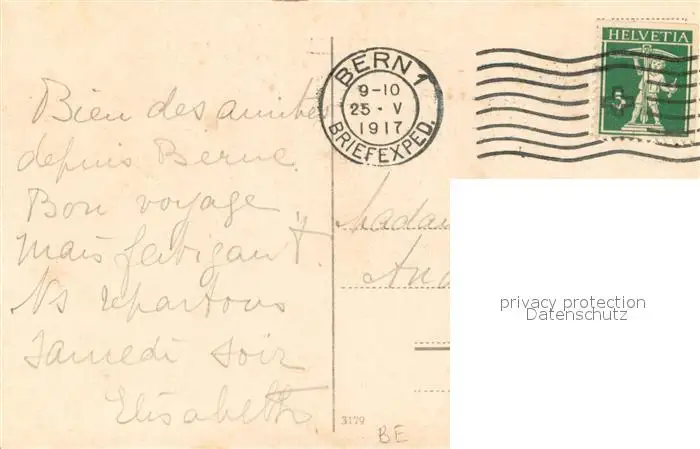 Bien des amitiés
depuis Berne.
Bon voyage,
mais fatigant.
Ns repartons
Samedi soir
Elisabeth
BERN 1
9-10
25 · V
1917
BRIEFEXPED.
HELVETIA
5
Madam
And
privacy protection
Datenschutz
3179
BE